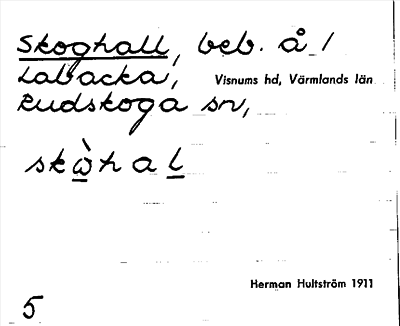 Skoghall, beb. å 1
Labacka, Visnums hd, Värmlands län
Rudskoga sn,
skὼhal
Herman Hultström 1911
5